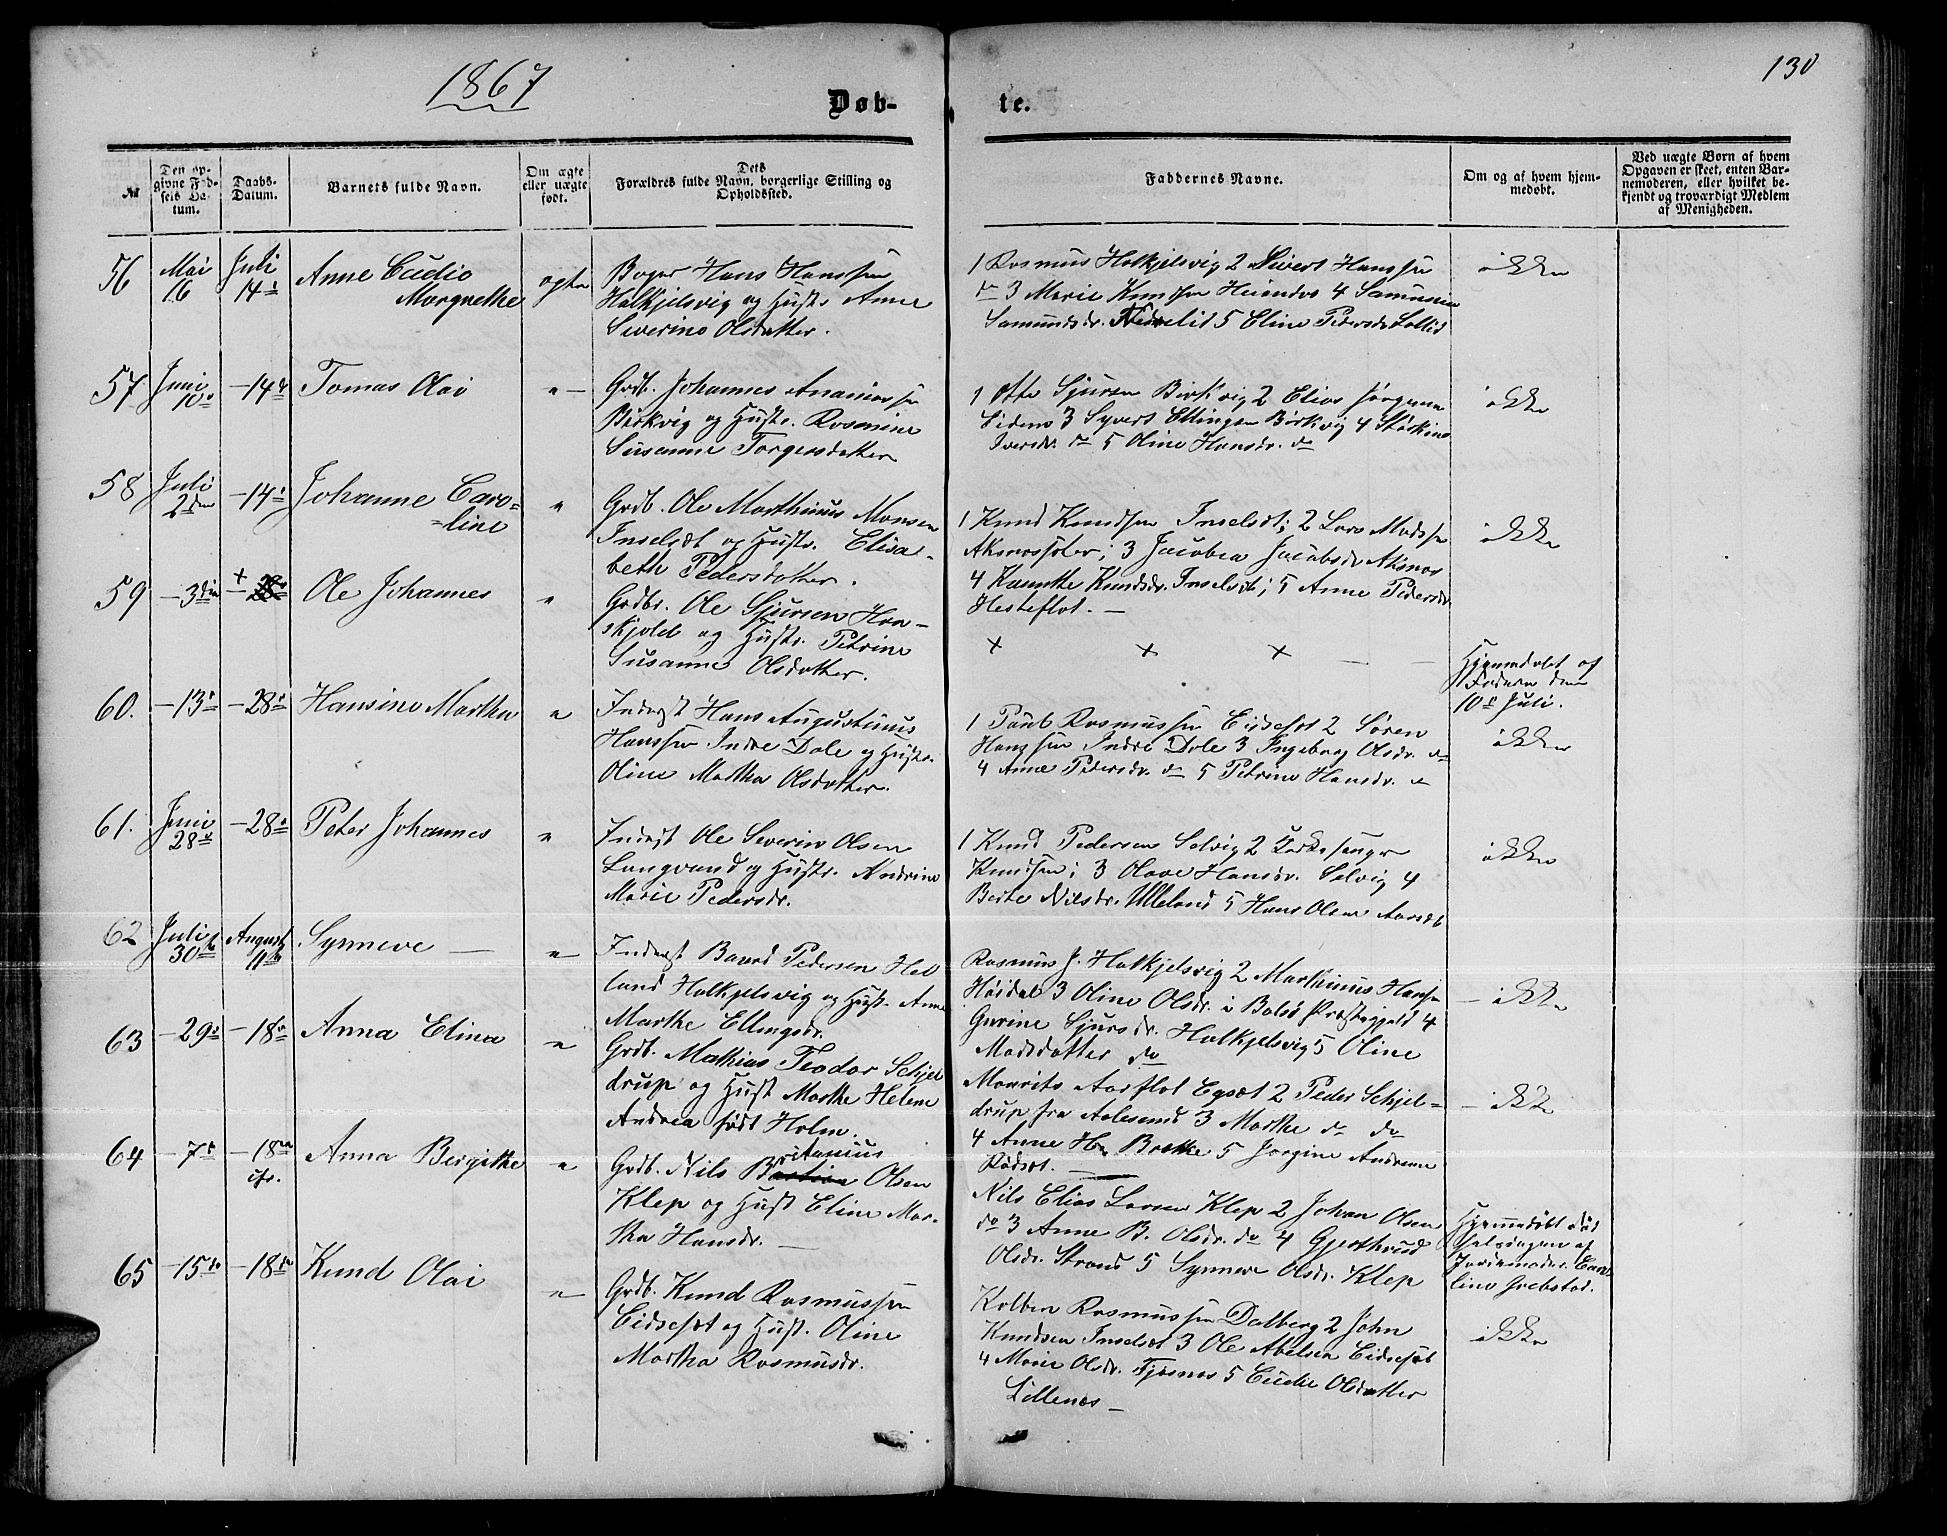 1867
130
Døb-
te.
№
Den op-
givne Fød-
sels Da-
tum.
Daabs-
Datum.
Barnets fulde Navn.
Om ægte
eller uægte
født.
Dets
Forældres fulde Navn, borgerlige Stilling og
Opholdssted.
Faddernes Navne.
Om og af hvem hjem-
medøbt.
Ved uægte Børn af hvem
Opgaven er skeet, enten Bar-
nemoderen, eller hvilket be-
kjendt og troværdigt Medlem
af Menigheden.
56 Mai 16 Juli 14 Anne
Margrethe
Hans Hanssen
Holkjelsvig og Hustr. Anne
Severine Olsdatter.
1 Rasmus Holkjelsvig 2 Sivert Hanssen
do 3 Marie Knudsen 4
Samundsdr. 5 Eline Pedersdr
ikke
57 Juni 10 -14 Tomas Olai
Grdb. Johannes Ananiassen
Birkvig og Hustr. Rasmine
Susanne Torgersdatter
1 Otte Sjursen Birkvig 2 Elias Jørgensen
3 Syvert Ellingsen Birkvig 4
Iversdr. do 5 Oline Hansdr. do
ikke
58 Juli 2den -14 Johanne Caro=
=line
Grdb. Ole Marthinus Monsen
Inselset og Hustr. Elisa-
beth Pedersdatter.
1 Knud Knudsen Inselset; 2 Lars Madssen
3 Jacobea Jacobsdr Aksnes
4 Knudsdr. Inselset; 5 Anne Pedersdr.
Hesteflot. -
ikke
59 -3die + Ole Johannes
Grdbr. Ole Sjursen Hou-
skjold og Hustr. Petrine
Susanne Olsdatter.
+ + + - -
Hjemmedøbt af
Faderen den
10 Juli.
60. -13 -28 Hansine Martha
Inderst Hans Augustinus
Hanssen Indre Dale og Hustr.
Oline Martha Olsdatter.
1 Paul Rasmussen Eidseset 2 Søren
Hanssen Indre Dale 3 Ingeborg Olsdr. do
4 Anne Pedersdr. do 5 Petrine Hansdr. do
ikke
61. Juni 28 -28 Peter Johannes
Inderst Ole Severin Olsen
Langvand og Hustr. Andrine
Marie Pedersdr.
1 Knud Pedersen Selvig 2 Kirkesanger
Knudsen; 3 Olave Hansdr. Selvig 4
Berte Nilsdr. Ulleland 5 Hans Olsen Aarset
ikke
62 Juli 30 August 11 Synneve -
Inderst Baard Pedersen Hel
land Holkjelsvig og Hustr. Anne
Marthe Ellingsdr.
Rasmus J. Holkjelsvig 2 Marthinus Hansen
Høidal 3 Oline Olsdr. i Bolsø Præstegjeld 4
Gurine Sjursdr. Holkjelsvig 5 Oline
Madsdatter do
- ikke
63 -29 -18 Anna Elina
Grdb. Mathias Teodor Schjel
drup og Hust Marthe Helene
Andrea født Holm.
Mourits Aarflot Egset 2 Peder Schjel=
drup fra Aalesund 3 Marthe do do
4 Anne H. 5 Jorgine Andrine
Rødset.
- ikke
64 -7 -18 Anna Bergithe
Grdb. Nils Britanius Olsen
Klep og Hust Eline Mar-
tha Hansdr. -
Nils Elias Larsen Klep 2 Johan Olsen
do 3 Anne B. Olsdr. do 4 Gjerthrud
Olsdr. Strand 5 Synneve Olsdr. Klep
Hjemmedøbt ved
af
Jordemoder
65 -15 -18 Knud Olai
Grdb. Knud Rasmussen
Eidseset og Hust. Oline
Martha Rasmusdr.
Kolben Rasmussen Dalberg 2 John
Knudsen Inselset 3 Ole Abelsen Eidseset
4 Marie Olsdr. 5 Olsdatter
Lillenes -
ikke